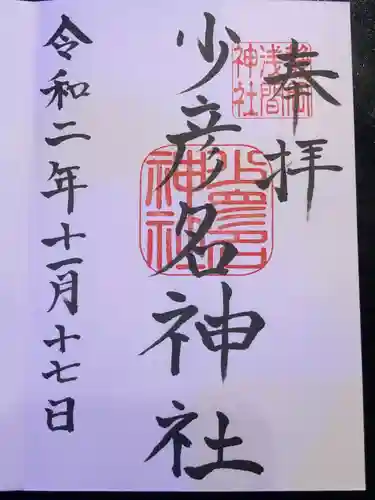 奉拝
少彦名神社
令和二年十一月十七日
浅間
神社
少彦名
神社